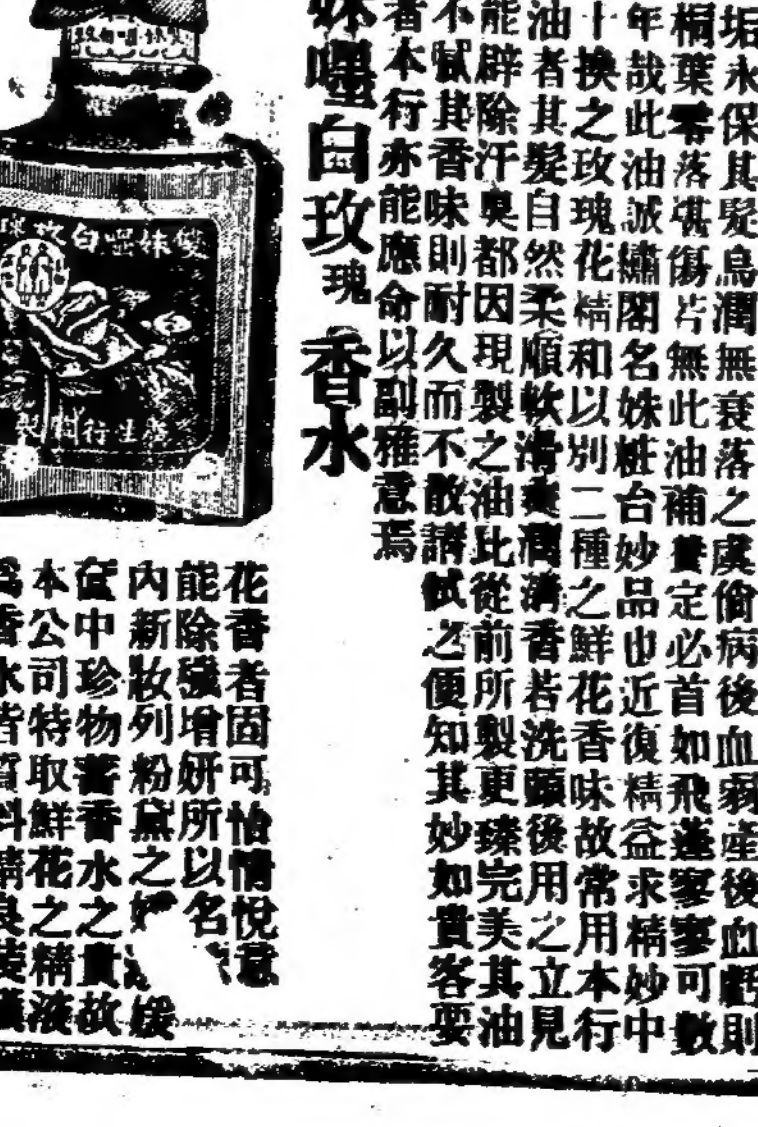 垢永保其髮烏潤無衰落之虞倘病後血弱產後血虧則
桐葉零落堪傷若無此油補養定必首如飛蓬寥寥可數
年哉此油誠繡閣名姝粧台妙品也近復精益求精妙中
十換之玫瑰花精和以別二種之鮮花香味故常用本行
油者其髮自然柔順軟滑爽潤清香若洗頭後用之立見
能辟除汗臭都因現製之油比從前所製更臻完美其油
不膩其香味則耐久而不散請試之便知其妙如貴客要
者本行亦能應命以副雅意焉
妹嚜白玫瑰香水
雙妹嚜白玫瑰
廣生行監製
花香者固可怡情悅意
能除穢增妍所以名
內新妝列粉黛之 媛
奩中珍物蓄香水之貴故
本公司特取鮮花之精液
為香水皆質料精良裝潢